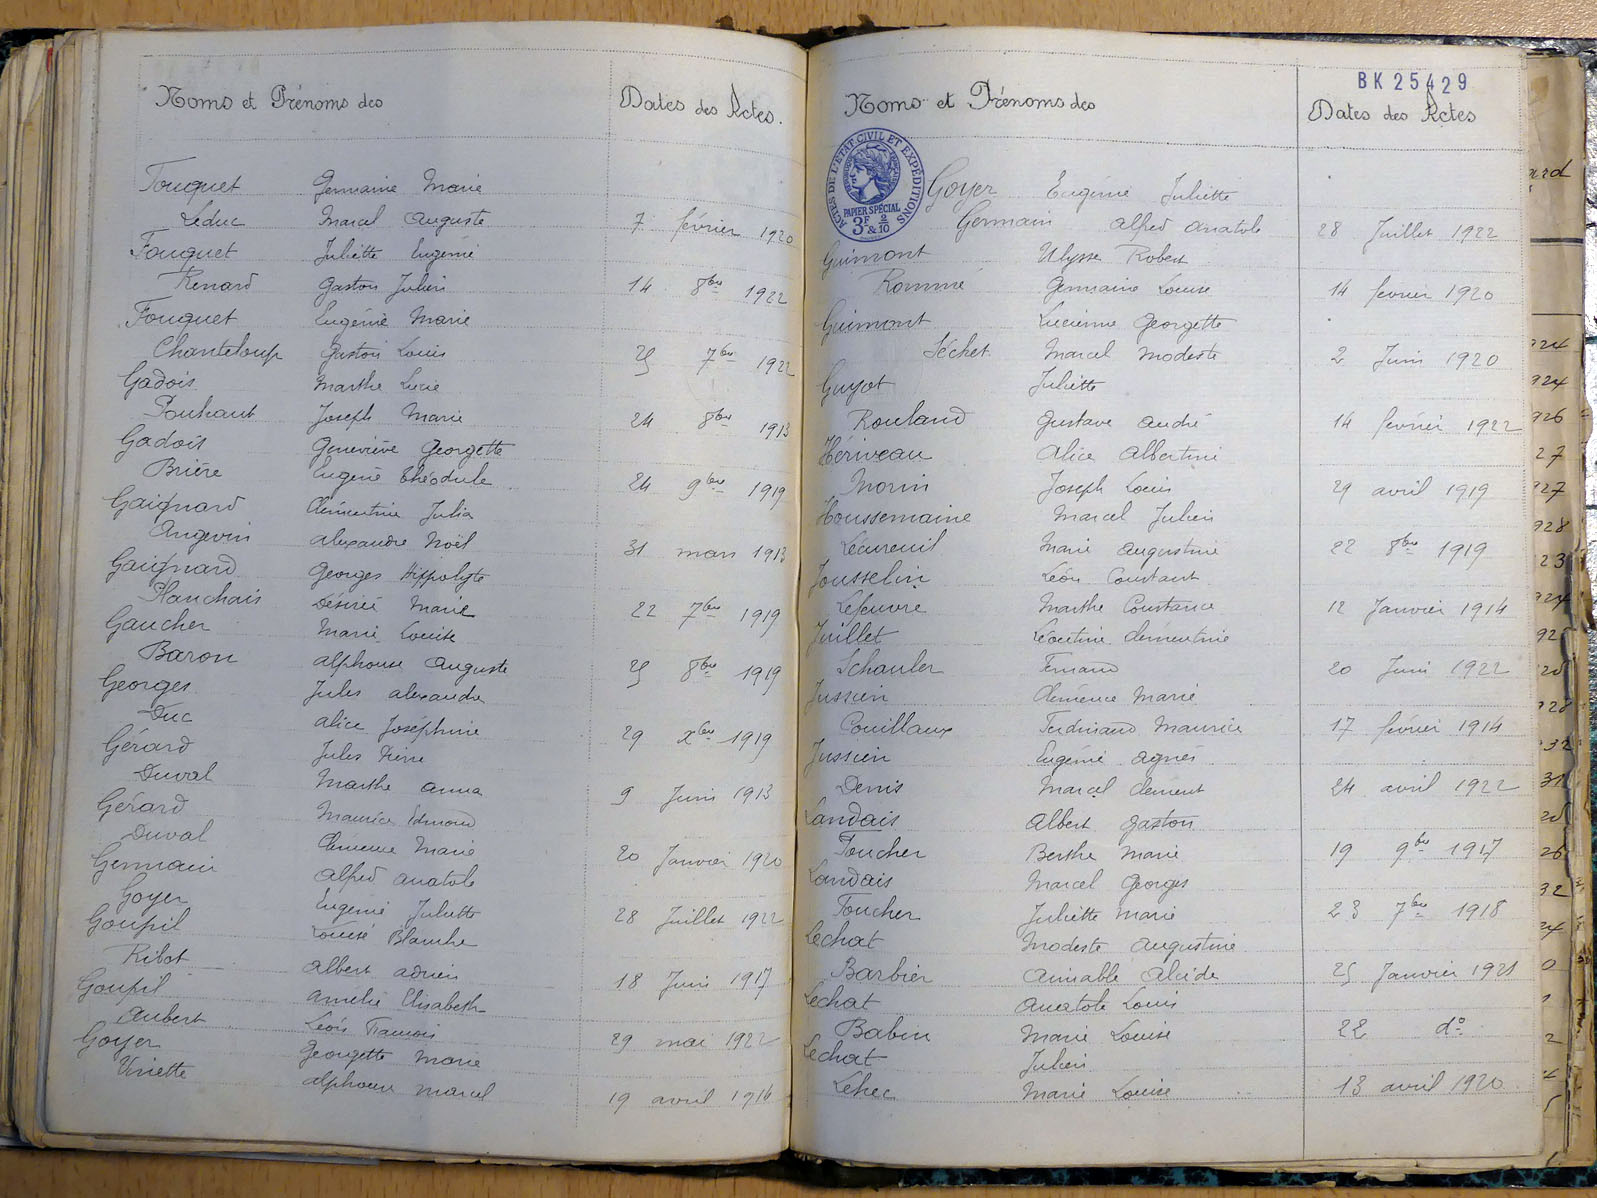 Noms et Prénoms des Dates des Actes.
Fouquet Germaine Marie
Leduc Marcel Auguste 7 février 1920
Fouquet Juliette Eugénie
Renard Gaston Julien 14 8bre 1922
Fouquet Eugénie Marie
Chanteloup Gaston Louis 25 7bre 1922
Gadois Marthe Lucie
Pouhaut Joseph Marie 24 8bre 1913
Gadois Geneviève Georgette
Brière Eugène Théodule 24 9bre 1919
Gaignard Clémentine Julia
Angevin Alexandre Noël 31 mars 1913
Gaignard Georges Hippolyte
Planchais Désirée Marie 22 7bre 1919
Gaucher Marie Louise
Baron Alphonse Auguste 25 8bre 1919
Georges Jules Alexandre
Duc Alice Joséphine 29 Xbre 1919
Gérard Jules Pierre
Duval Marthe Anna 9 Juin 1913
Gérard Maurice Edmond
Duval Clémence Marie 20 Janvier 1920
Germain Alfred Anatole
Goyer Eugénie Juliette 28 Juillet 1922
Goupil Louise Blanche
Ribot Albert Adrien 18 Juin 1917
Goupil Amélie Elisabeth
Aubert Léon François 29 mai 1922
Goyer Georgette Marie
Viniette Alphonse Marcel 19 avril 1916
BK 25429
Noms et Prénoms des Dates des Actes
ACTES DE L'ETAT-CIVIL ET EXPÉDITIONS
PAPIER SPÉCIAL
3F & 2/10
Goyer Eugénie Juliette
Germain Alfred Anatole 28 Juillet 1922
Guimont Ulysse Robert
Rommé Germaine Louise 14 février 1920
Guimont Lucienne Georgette
Séchet Marcel Modeste 2 Juin 1920
Guyot Juliette
Rouland Gustave André 14 février 1922
Hériveau Alice Albertine
Morin Joseph Louis 29 avril 1919
Houssemaine Marcel Julien
Lécureuil Marie Augustine 22 8bre 1919
Jousselin Léon Constant
Lefeuvre Marthe Constance 12 Janvier 1914
Juillet Léontine Clémentine
Schauler Fernand 20 Juin 1922
Jussein Clémence Marie
Couillaux Ferdinand Maurice 17 février 1914
Jussein Eugénie Agnès
Denis Marcel Clément 24 avril 1922
Landais Albert Gaston
Foucher Berthe Marie 19 9bre 1917
Landais Marcel Georges
Foucher Juliette Marie 23 7bre 1918
Lechat Modeste Augustine
Barbier Aimable Alcide 25 Janvier 1921
Lechat Anatole Louis
Babin Marie Louise 22 do
Lechat Julien
Lehec Marie Louise 13 avril 1920